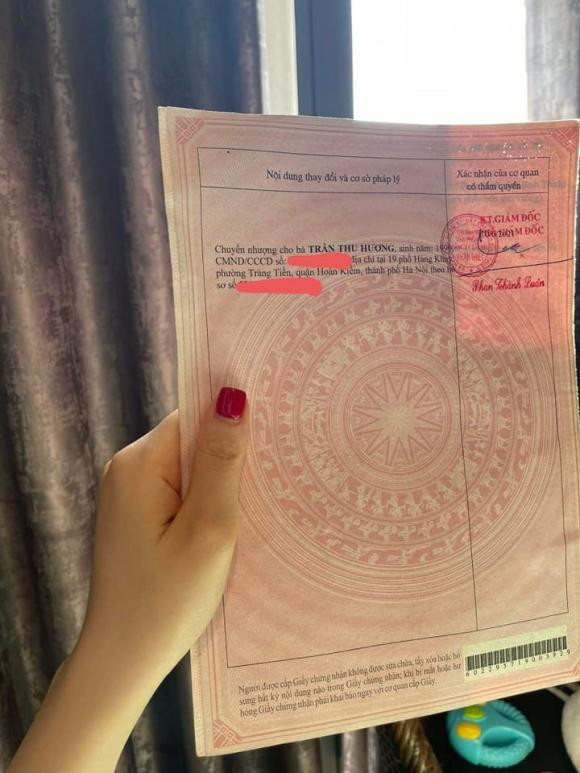 Nội dung thay đổi và cơ sở pháp lý
Xác nhận của cơ quan
có thẩm quyền
Chuyển nhượng cho bà TRẦN THU HƯƠNG, sinh năm:
CMND/CCCD số: địa chỉ tại 19 phố Hàng Khay,
phường Tràng Tiền, quận Hoàn Kiếm, thành phố Hà Nội theo hồ
sơ số
KT.GIÁM ĐỐC
GIÁM ĐỐC
Phan Thành Luân
Người được cấp Giấy chứng nhận không được sửa chữa, tẩy xóa hoặc bổ
sung bất kỳ nội dung nào trong Giấy chứng nhận; khi bị mất hoặc hư
hỏng Giấy chứng nhận phải khai báo ngay với cơ quan cấp Giấy.